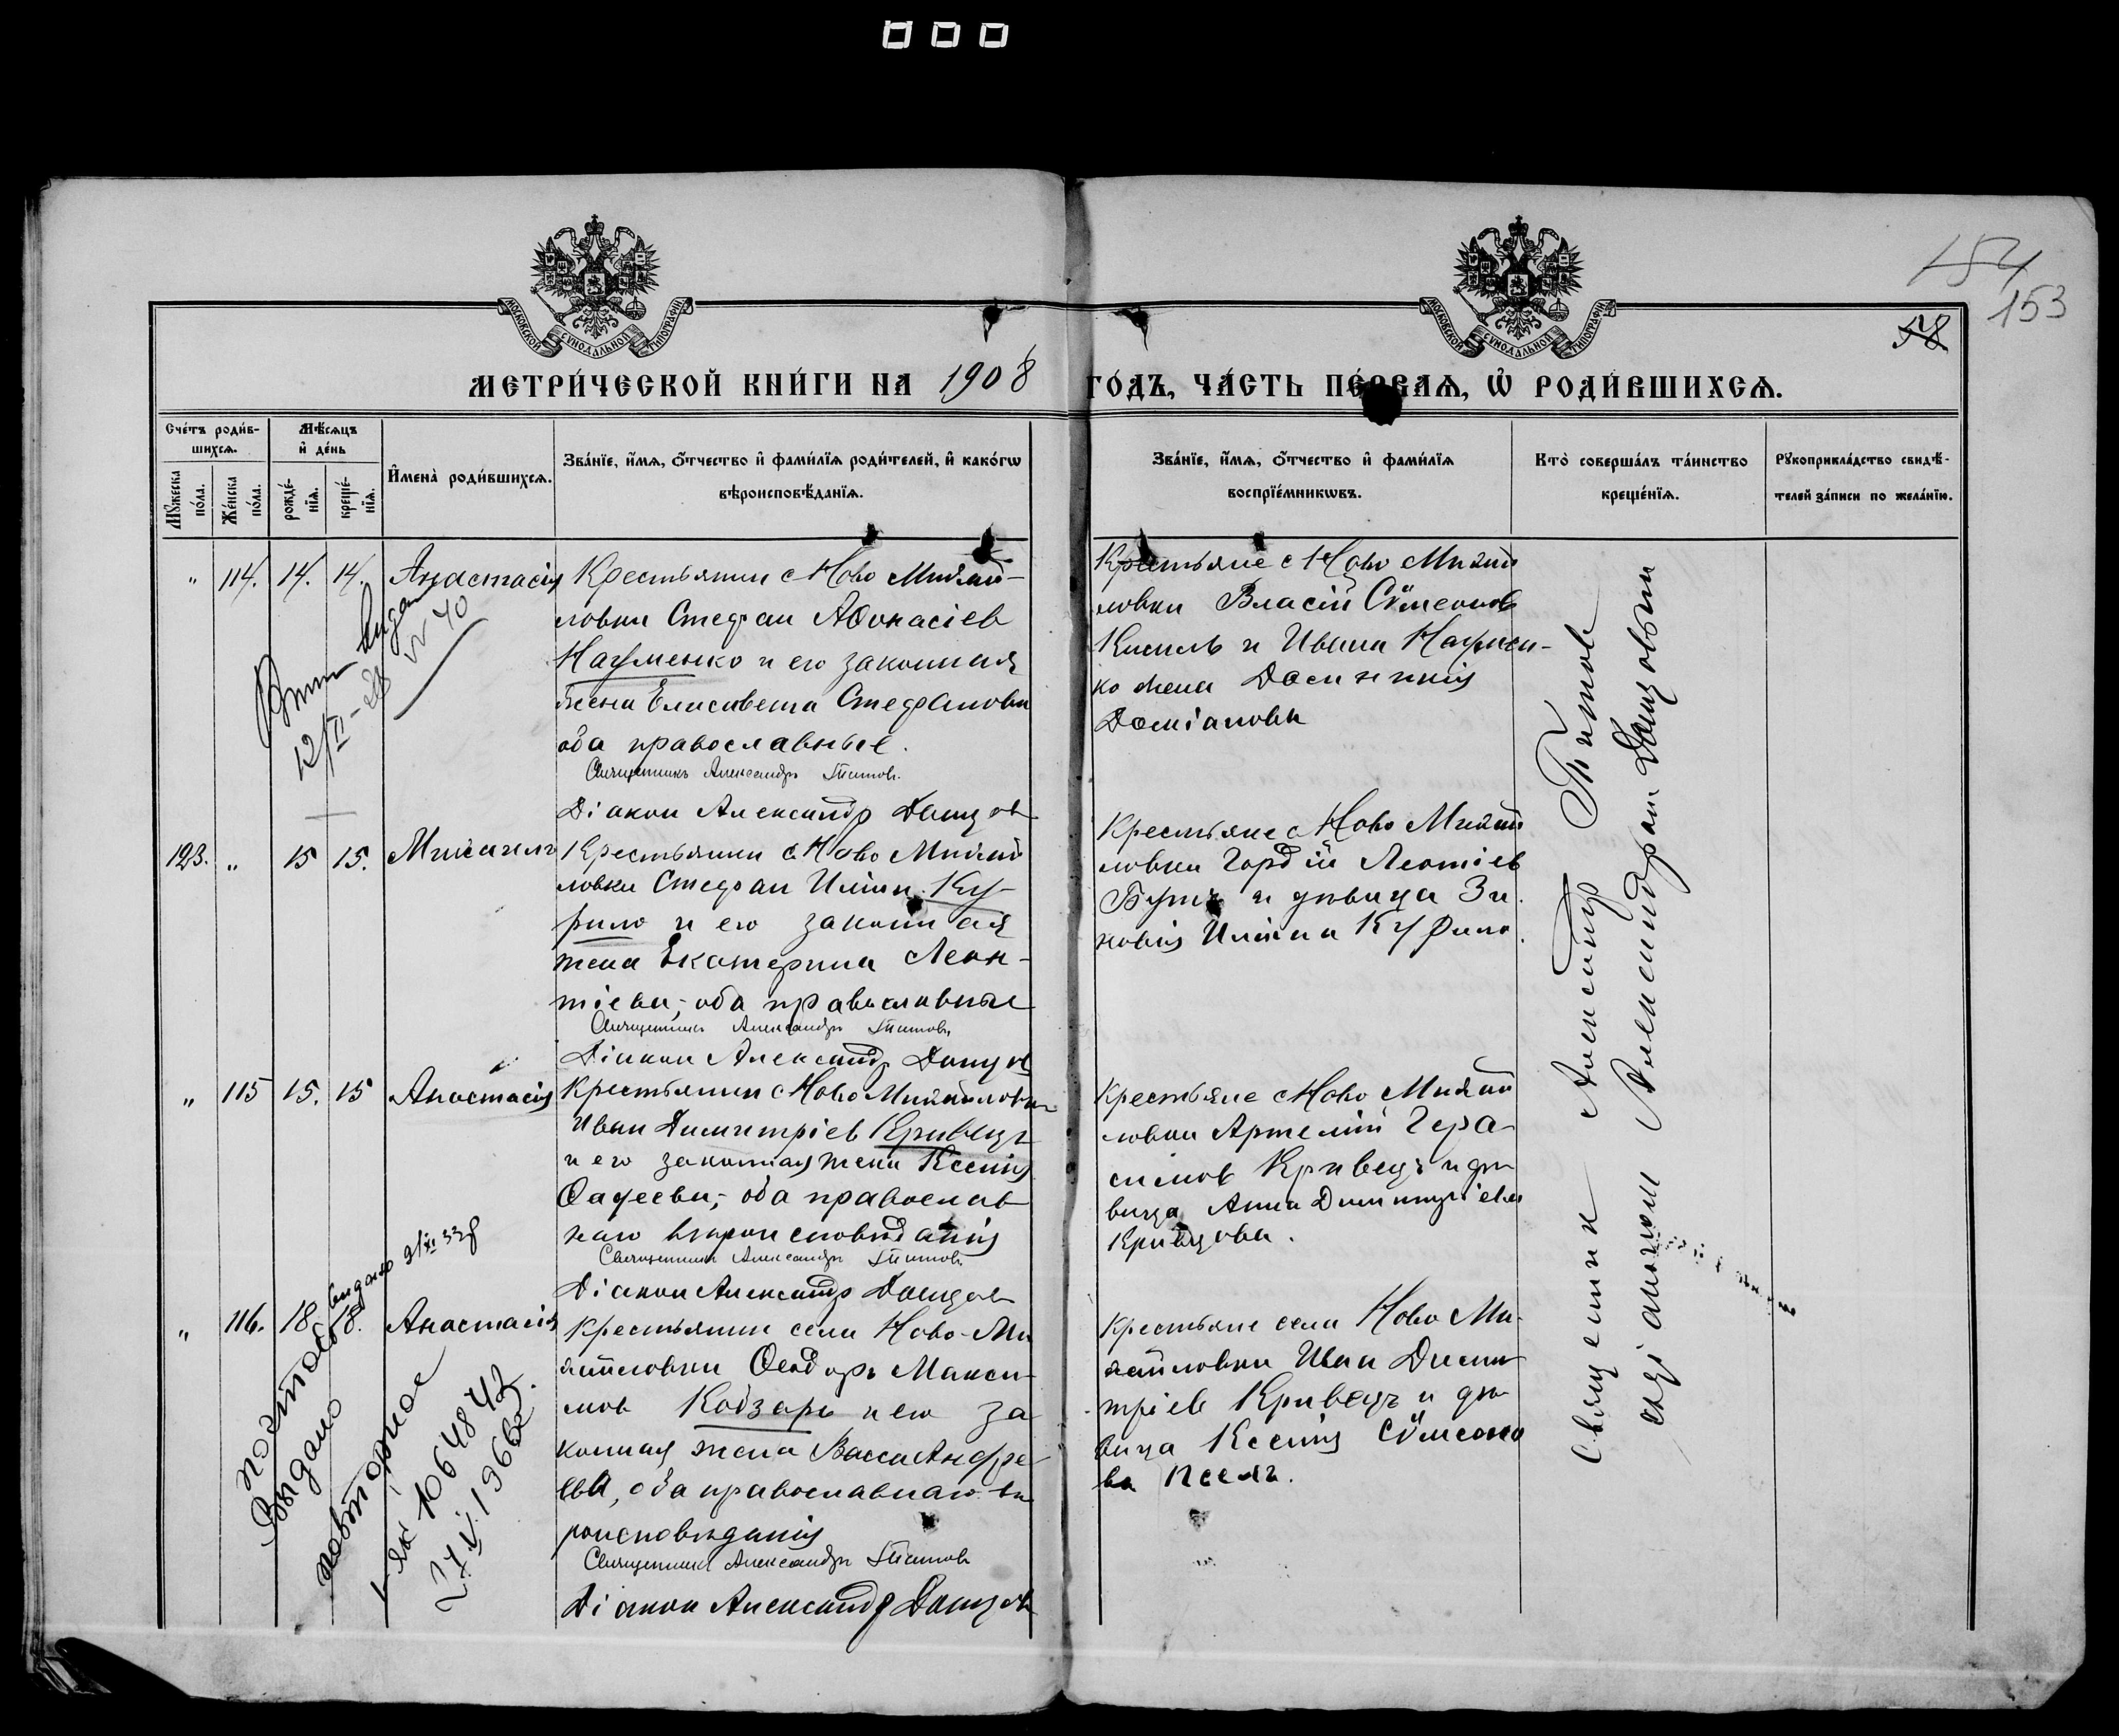 154
153
58
МОСКОВСКОЙ СѴНОДАЛЬНОЙ ТИПОГРАФІИ
МОСКОВСКОЙ СѴНОДАЛЬНОЙ ТИПОГРАФІИ
МЕТРИ́ЧЕСКОЙ КНИ́ГИ НА 1908 ГО́ДЪ, ЧА́СТЬ ПЕ́РВАѦ, Ѽ РОДИ́ВШИХСѦ.
Сче́тъ роди́в-
шихсѧ.
Мꙋжеска по́ла.
Же́нска по́ла.
Мѣ́сѧцъ и҆ де́нь
рожде́-нїѧ.
креще́-нїѧ.
И҆мена̀ роди́вшихсѧ.
Зва́нїе, и҆́мѧ, ѻ҆́тчество и҆ фами́лїѧ роди́телей, и҆ како́гѡ
вѣроисповѣ́данїѧ.
Зва́нїе, и҆́мѧ, ѻ҆́тчество и҆ фами́лїѧ
воспрїе́мникѡвъ.
Кто̀ соверша́лъ та́инство
креще́нїѧ.
Рꙋкоприкла́дство свидѣ́-
телей за́писи по жела́нїю.
" 114. 14. 14. Анастасія
Крестьянин с Ново Михай-
ловки Стефан Аѳонасіев
Науменко и его законная
жена Елисавета Стефановна
оба православные.
Священникъ Александръ Титов.
Діакон Александр Донцов
Крестьяне с Ново Михай
ловки Власій Сѵмеонов
Кисиль и Ивана Наумен-
ко жена
Даміановна
12/II-28 № 40
123. " 15 15. Михаилъ
Крестьянин с Ново Михай
ловки Стефан Илiин Ку-
рило и его законная
жена Екатерина Леон-
тіева, оба православные
Священникъ Александръ Титовъ
Діакон Александр Донцов
Крестьяне с Ново Михай
ловки Гордій Леонтіев
и дѣвица Зи
новія Иліина Курило.
" 115 15. 15 Анастасія
Крестьянин с Ново Михайловки
Иван Димитріев Кривецъ
и его законная жена Ксенія
Ѳадеева, оба православ
наго вѣроисповѣданія
Священникъ Александръ Титовъ
Діакон Александр Донцов
Крестьяне с Ново Михай
ловки Артемій Гера
симов Кривецъ и дѣ
вица Анна Димитріева
Кривцова.
" 116. 18. 18. Анастасія
Крестьянин села Ново-Ми
хайловки Ѳеодоръ Макси-
мов Кобзарь и его за
конная жена Васса Андре
ева, оба православнаго вѣ
роисповѣданія
Священникъ Александръ Титов
Діакон Александр Донцов
Крестьяне села Ново Ми-
хайловки Иван Дими
тріев Кривецъ и дѣ
вица Ксенія Сѵмеоно
ва Пселъ.
Выдано
повторное
1-яѵ 1064842
27 V. 1966
Священник Александр Титов
с діаконом Александром Донцовым